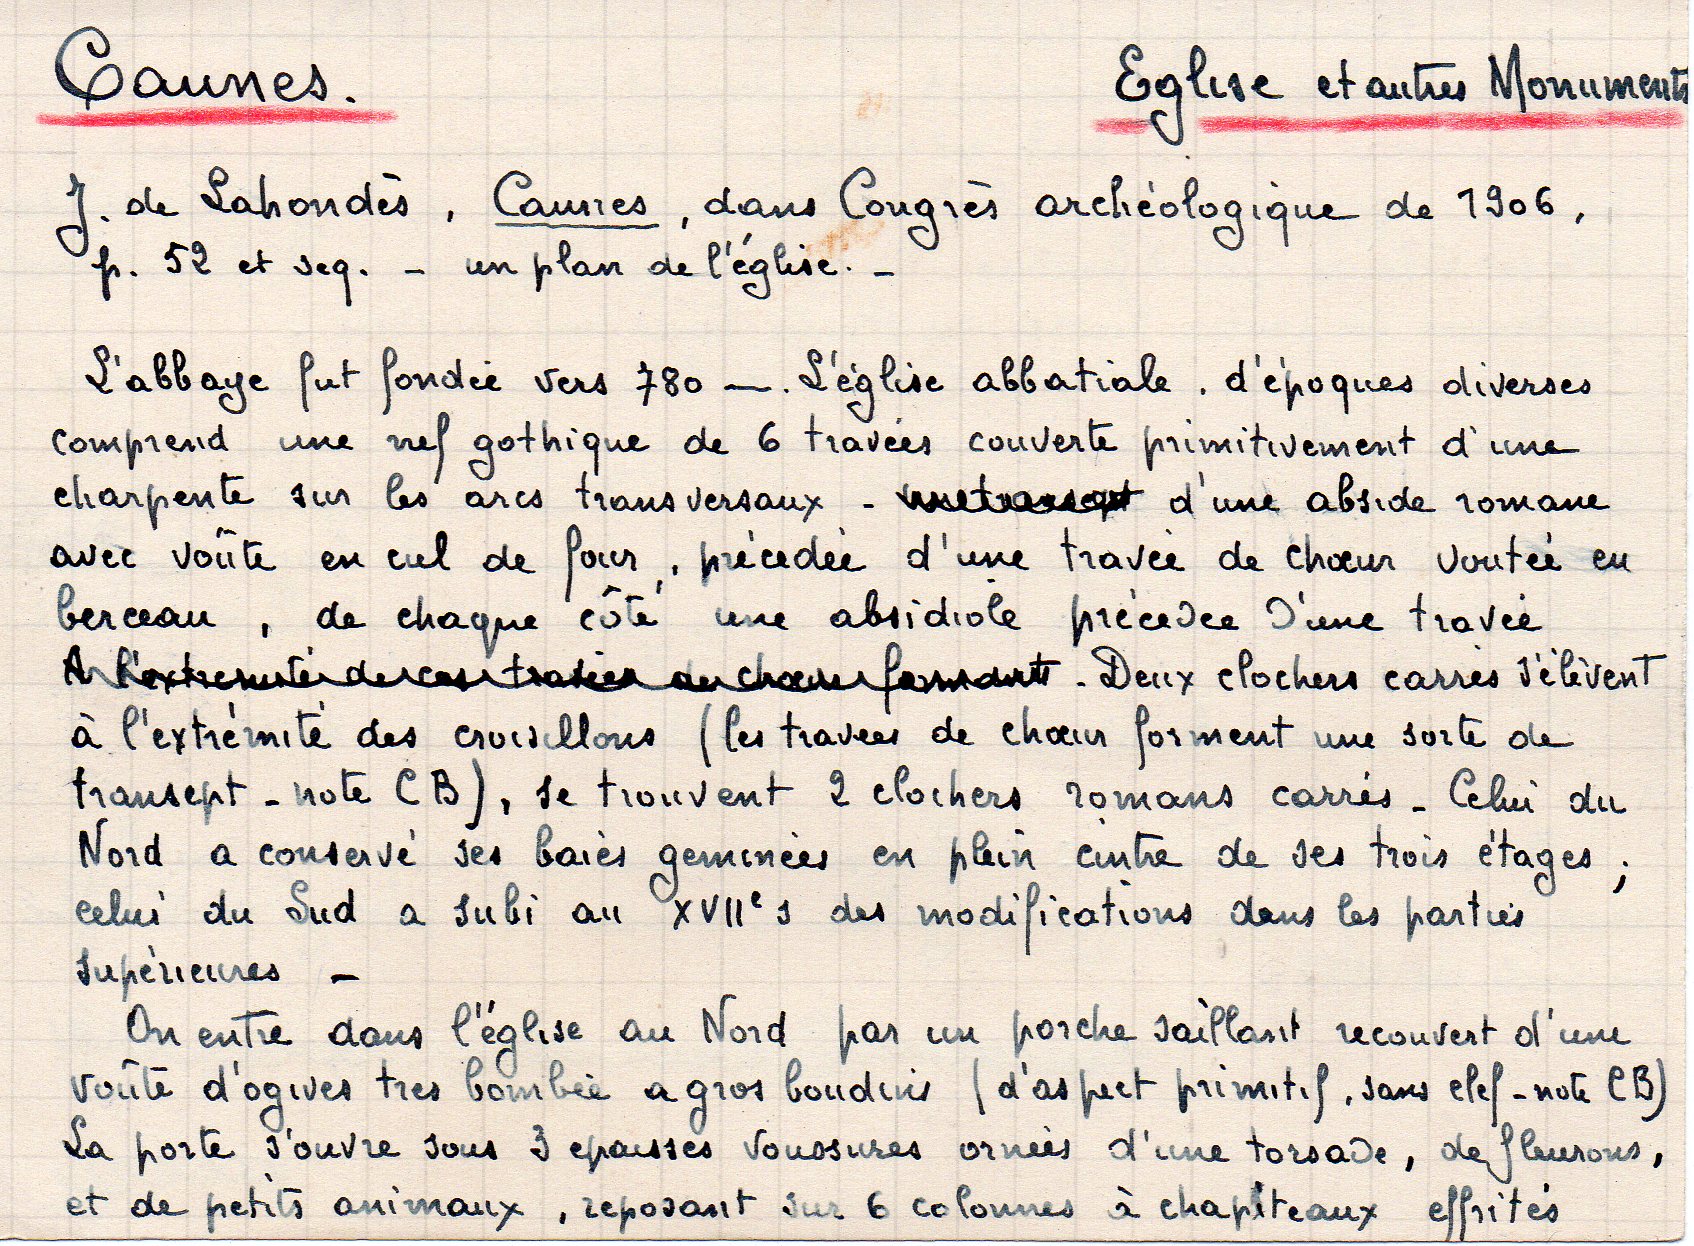 Caunes. Eglise et autres Monuments
J. de Lahondès, Caunes, dans Congrès archéologique de 1906,
p. 52 et seq. - un plan de l'église. -
L'abbaye fut fondée vers 780 —. L'église abbatiale, d'époques diverses
comprend une nef gothique de 6 travées couverte primitivement d'une
charpente sur les arcs transversaux - une transept d'une abside romane
avec voûte en cul de four, précédée d'une travée de chœur voutée en
berceau, de chaque côté une absidiole précédée d'une travée
A l'extremité de ces travées du chœur formant - Deux clochers carrés s'élèvent
à l'extrémité des croisillons (les travées de chœur forment une sorte de
transept - note CB), se trouvent 2 clochers romans carrés - Celui du
Nord a conservé ses baies geminées en plein cintre de ses trois étages ;
celui du Sud a subi au XVIIe s des modifications dans les parties
supérieures -
On entre dans l'église au Nord par un porche saillant recouvert d'une
voûte d'ogives tres bombée a gros boudins (d'aspect primitif, sans clef - note CB)
La porte s'ouvre sous 3 epaisses voussures ornées d'une torsade, de fleurons,
et de petits animaux, reposant sur 6 colonnes à chapiteaux effrités